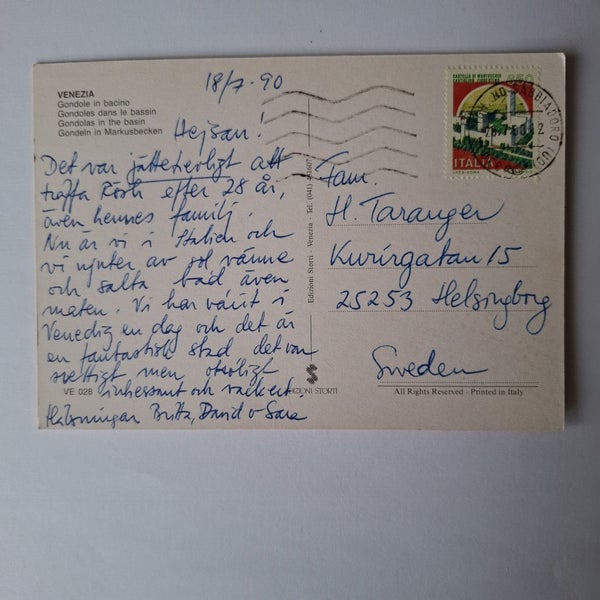 VENEZIA
Gondole in bacino
Gondoles dans le bassin
Gondolas in the basin
Gondeln in Markusbecken
18/7-90
Hejsan!
Det var jätteteroligt att
träffa Kösti efter 28 år,
även hennes familj.
Nu är vi i Italien och
vi njuter av sol värme
och salta bad även
maten. Vi har varit i
Venedig en dag och det är
en fantastisk stad det var
svettigt men otroligt
intressant och vackert.
Hälsningar Britta, David o Sara
VE 028
Edizioni Storti Venezia - Tel. (041)
EDIZIONI STORTI
CASTELLO DI MONTECCHIO
CASTIGLION FIORENTINO
650
ITALIA
Fam.
H. Taranger
Kurirgatan 15
25253 Helsingborg
Sweden
All Rights Reserved - Printed in Italy